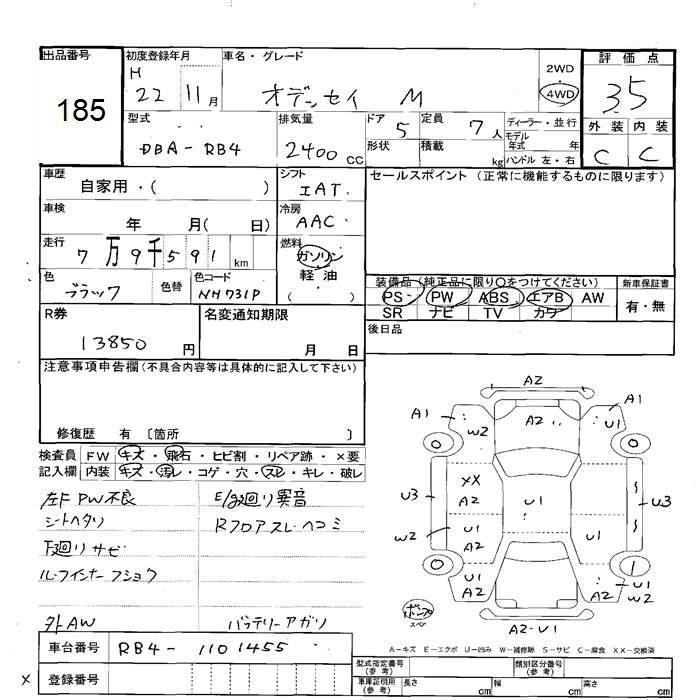 出品番号 初度登録年月 車名・グレード 評価点
185
H 22 11月 オデッセイ M 2WD 4WD 3.5
型式 排気量 ドア 定員 ディーラー・並行 外装 内装
DBA-RB4 2400CC 5 7人 モデル年式 年 C C
形状 積載 kg ハンドル 左・右
車歴 自家用・( ) シフト IAT. セールスポイント (正常に機能するものに限ります)
車検 年 月( 日) 冷房 AAC
走行 7万9千591km 燃料 ガソリン 軽油 ( )
色 ブラック 色替 色コード NH731P
装備品 (純正品に限り〇をつけてください) 新車保証書
PS PW ABS エアB AW 有・無
SR ナビ TV カワ
R券 13850円 名変通知期限 月 日 後日品
注意事項申告欄 (不具合内容等は具体的に記入して下さい)
修復歴 有 〔箇所 〕
検査員 FW キズ・飛石・ヒビ割・リペア跡・×要
記入欄 内装 キズ・汚レ・コゲ・穴・スレ・キレ・破レ
左F PW不良 E/g廻り異音
シートヘタリ Rフロアスレ・ヘコミ
下廻りサビ
ル-フインナーフショク
外AW バッテリーアガリ
車台番号 RB4-1101455
× 登録番号
A2
A1 W2 A2 U1 A1
U3 XX A2 U1 U3
W2 U1 A2 U1
U1 A2 A2 U1 W2
A2-U1
A-キズ E-エクボ U-凹み W-補修跡 S-サビ C-腐食 XX-交換済
型式指定番号 (参考) 類別区分番号 (参考)
車庫証明用 (参考) 長さ cm 幅 cm 高さ cm